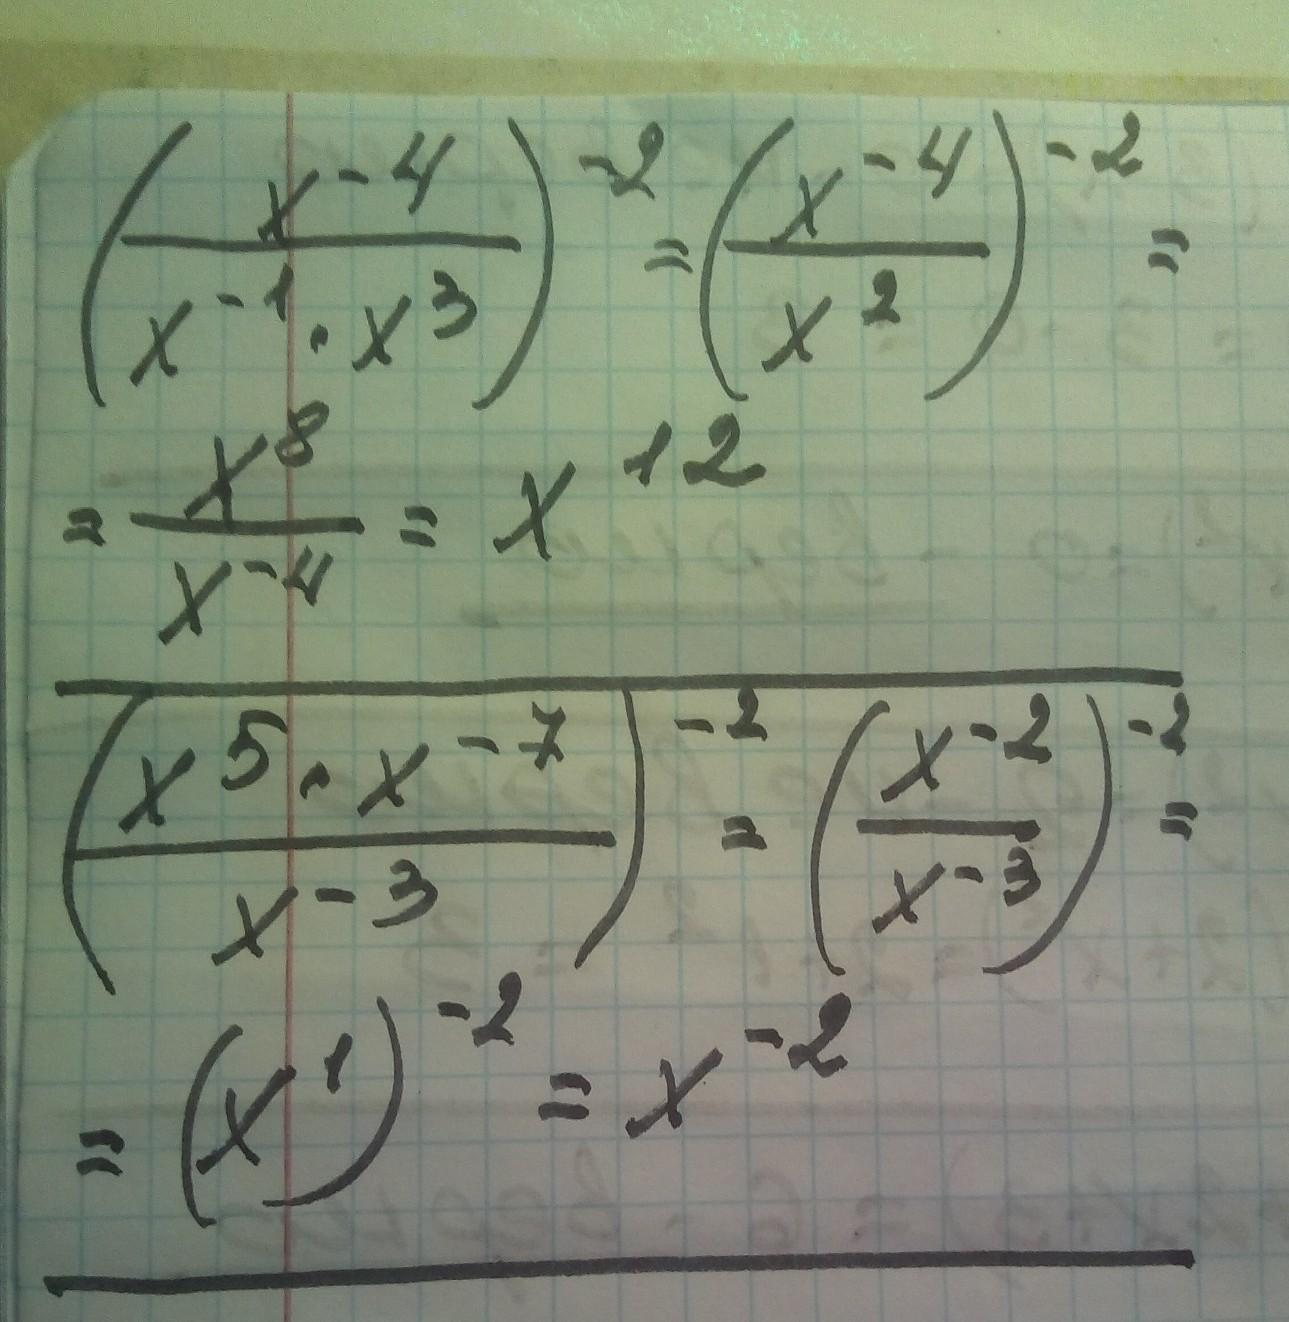 (x⁻⁴ / (x⁻¹ · x³))⁻² = (x⁻⁴ / x²)⁻² =
= x⁸ / x⁻⁴ = x¹²
((x⁵ · x⁻⁷) / x⁻³)⁻² = (x⁻² / x⁻³)⁻² =
= (x¹)⁻² = x⁻²